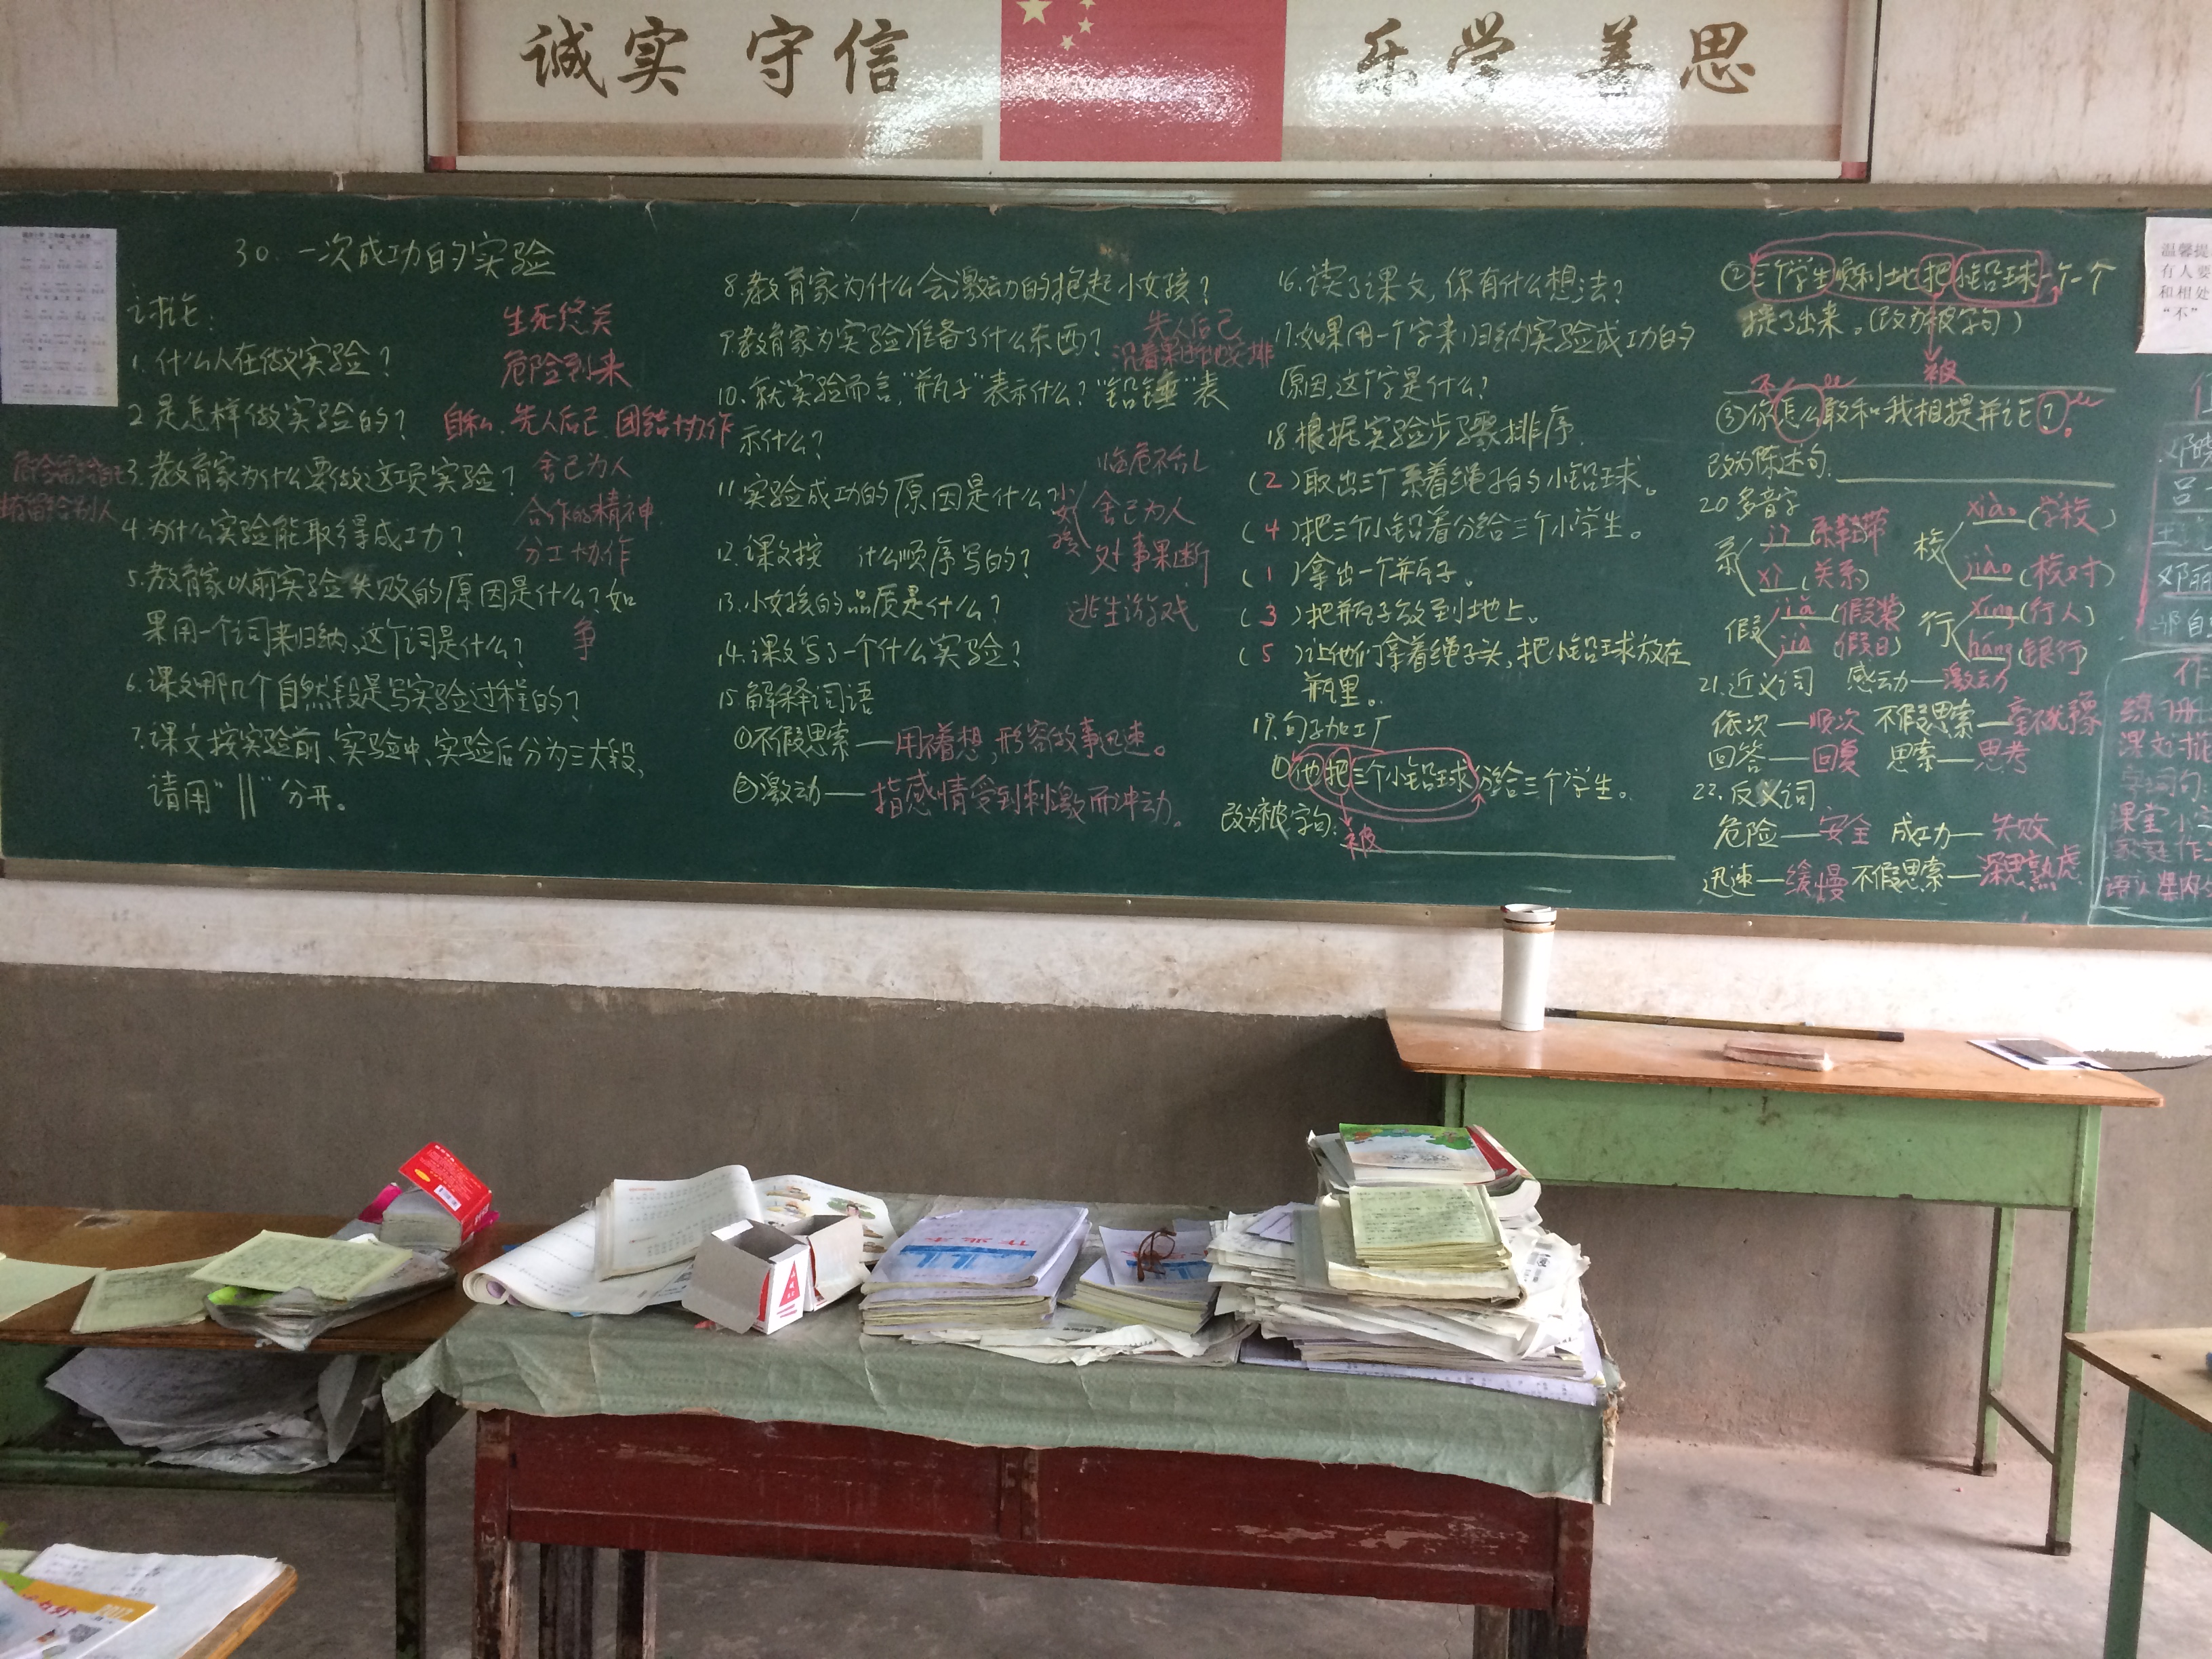 诚实 守信
乐学 善思
30. 一次成功的实验
讨论:
1. 什么人在做实验?
2 是怎样做实验的?
3. 教育家为什么要做这项实验?
4. 为什么实验能取得成功?
5. 教育家以前实验失败的原因是什么?如
果用一个词来归纳,这个词是什么?
争
6. 课文哪几个自然段是写实验过程的?
7. 课文按实验前、实验中、实验后分为三大段,
请用“||”分开。
生死悠关
危险到来
自私、先人后己 团结协作
舍己为人
合作的精神
分工协作
8. 教育家为什么会激动的抱起小女孩?
9. 教育家为实验准备了什么东西?
先人后己
10. 就实验而言,“瓶子”表示什么?“铅锤”表
示什么?
11. 实验成功的原因是什么?
12. 课文按 什么顺序写的?
13. 小女孩的品质是什么?
14. 课文写了一个什么实验?
15. 解释词语
①不假思索—用不着想,形容做事迅速。
②激动—指感情受到刺激而冲动。
小女孩
临危不乱
舍己为人
处事果断
逃生游戏
16. 读了课文,你有什么想法?
17. 如果用一个字来归纳实验成功的
原因,这个字是什么?
18. 根据实验步骤排序.
(2)取出三个系着绳子的小铅球。
(4)把三个小铅着分给三个小学生。
(1)拿出一个瓶子。
(3)把瓶子放到地上。
(5)让他们拿着绳子头,把小铅球放在
瓶里。
19. 句子加工厂
①他把三个小铅球分给三个学生。
改为被字句:
被
②三个学生顺利地把小铅球一个一个
提了出来。(改为被字句)
被
③你怎么敢和我相提并论?
不
改为陈述句.
20 多音字
系 jì 系鞋带 xì (关系)
校 xiào (学校) jiào (校对)
假 jiǎ (假装) jià (假日)
行 xíng (行人) háng (银行)
21. 近义词 感动—激动
依次—顺次 不假思索—毫不犹豫
回答—回复 思索—思考
22. 反义词
危险—安全 成功—失败
迅速—缓慢 不假思索—深思熟虑
温馨提
有人要
和相处
“不”
作
练习册
课文
字词句
课堂小
家庭作
语文课内
作业本
2017